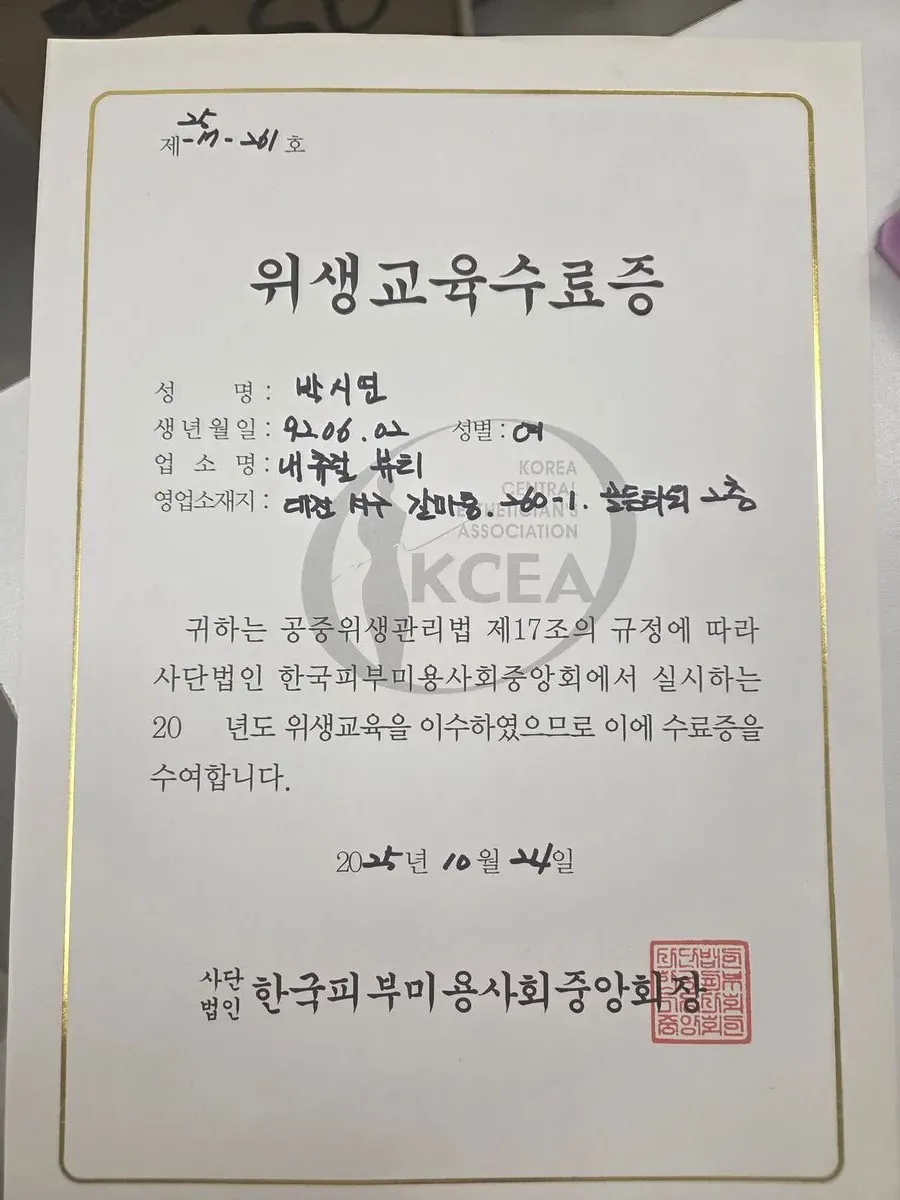 제 25-M-261 호
위생교육수료증
성 명 : 박시연
생년월일 : 92.06.02 성별 : 여
업소명 : 내츄럴 뷰티
영업소재지 : 대전 서구 갈마동. 260-1. 골든타워 2층
KOREA
CENTRAL
ESTHETICIAN'S
ASSOCIATION
KCEA
귀하는 공중위생관리법 제17조의 규정에 따라
사단법인 한국피부미용사회중앙회에서 실시하는
20 년도 위생교육을 이수하였으므로 이에 수료증을
수여합니다.
2025년 10월 24일
사단법인 한국피부미용사회중앙회장